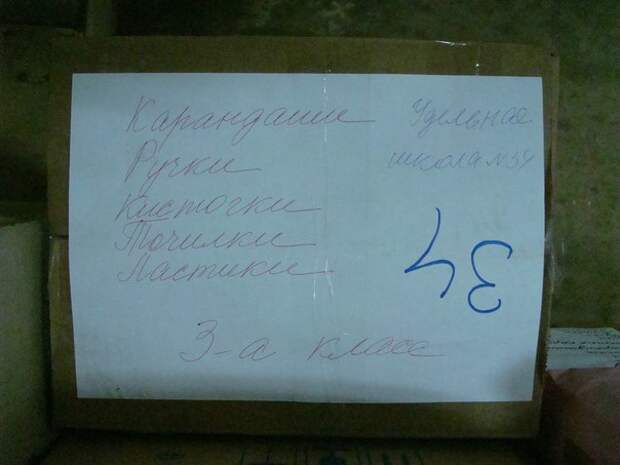 Карандаши
Ручки
Кисточки
Точилки
Ластики
3-а класс
Удельная
школа №34
34